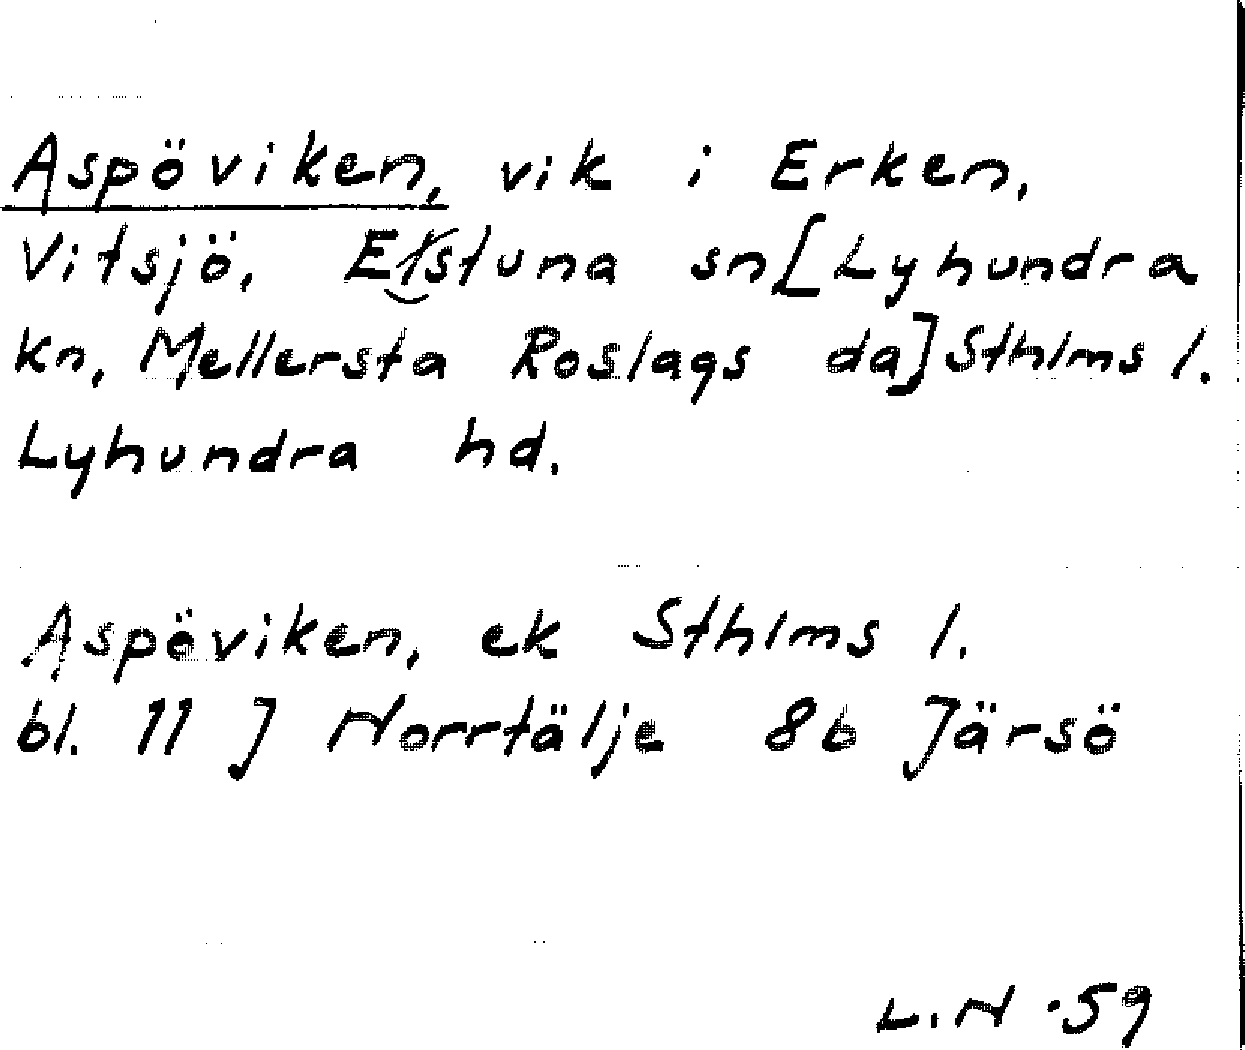 Aspöviken, vik i Erken,
Vitsjö, Estuna sn [Lyhundra
kn, Mellersta Roslags da] Sthlms l.
Lyhundra hd.
Aspöviken, ek Sthlms l.
bl. 11 J Norrtälje 8b Järsö
L.N. 59